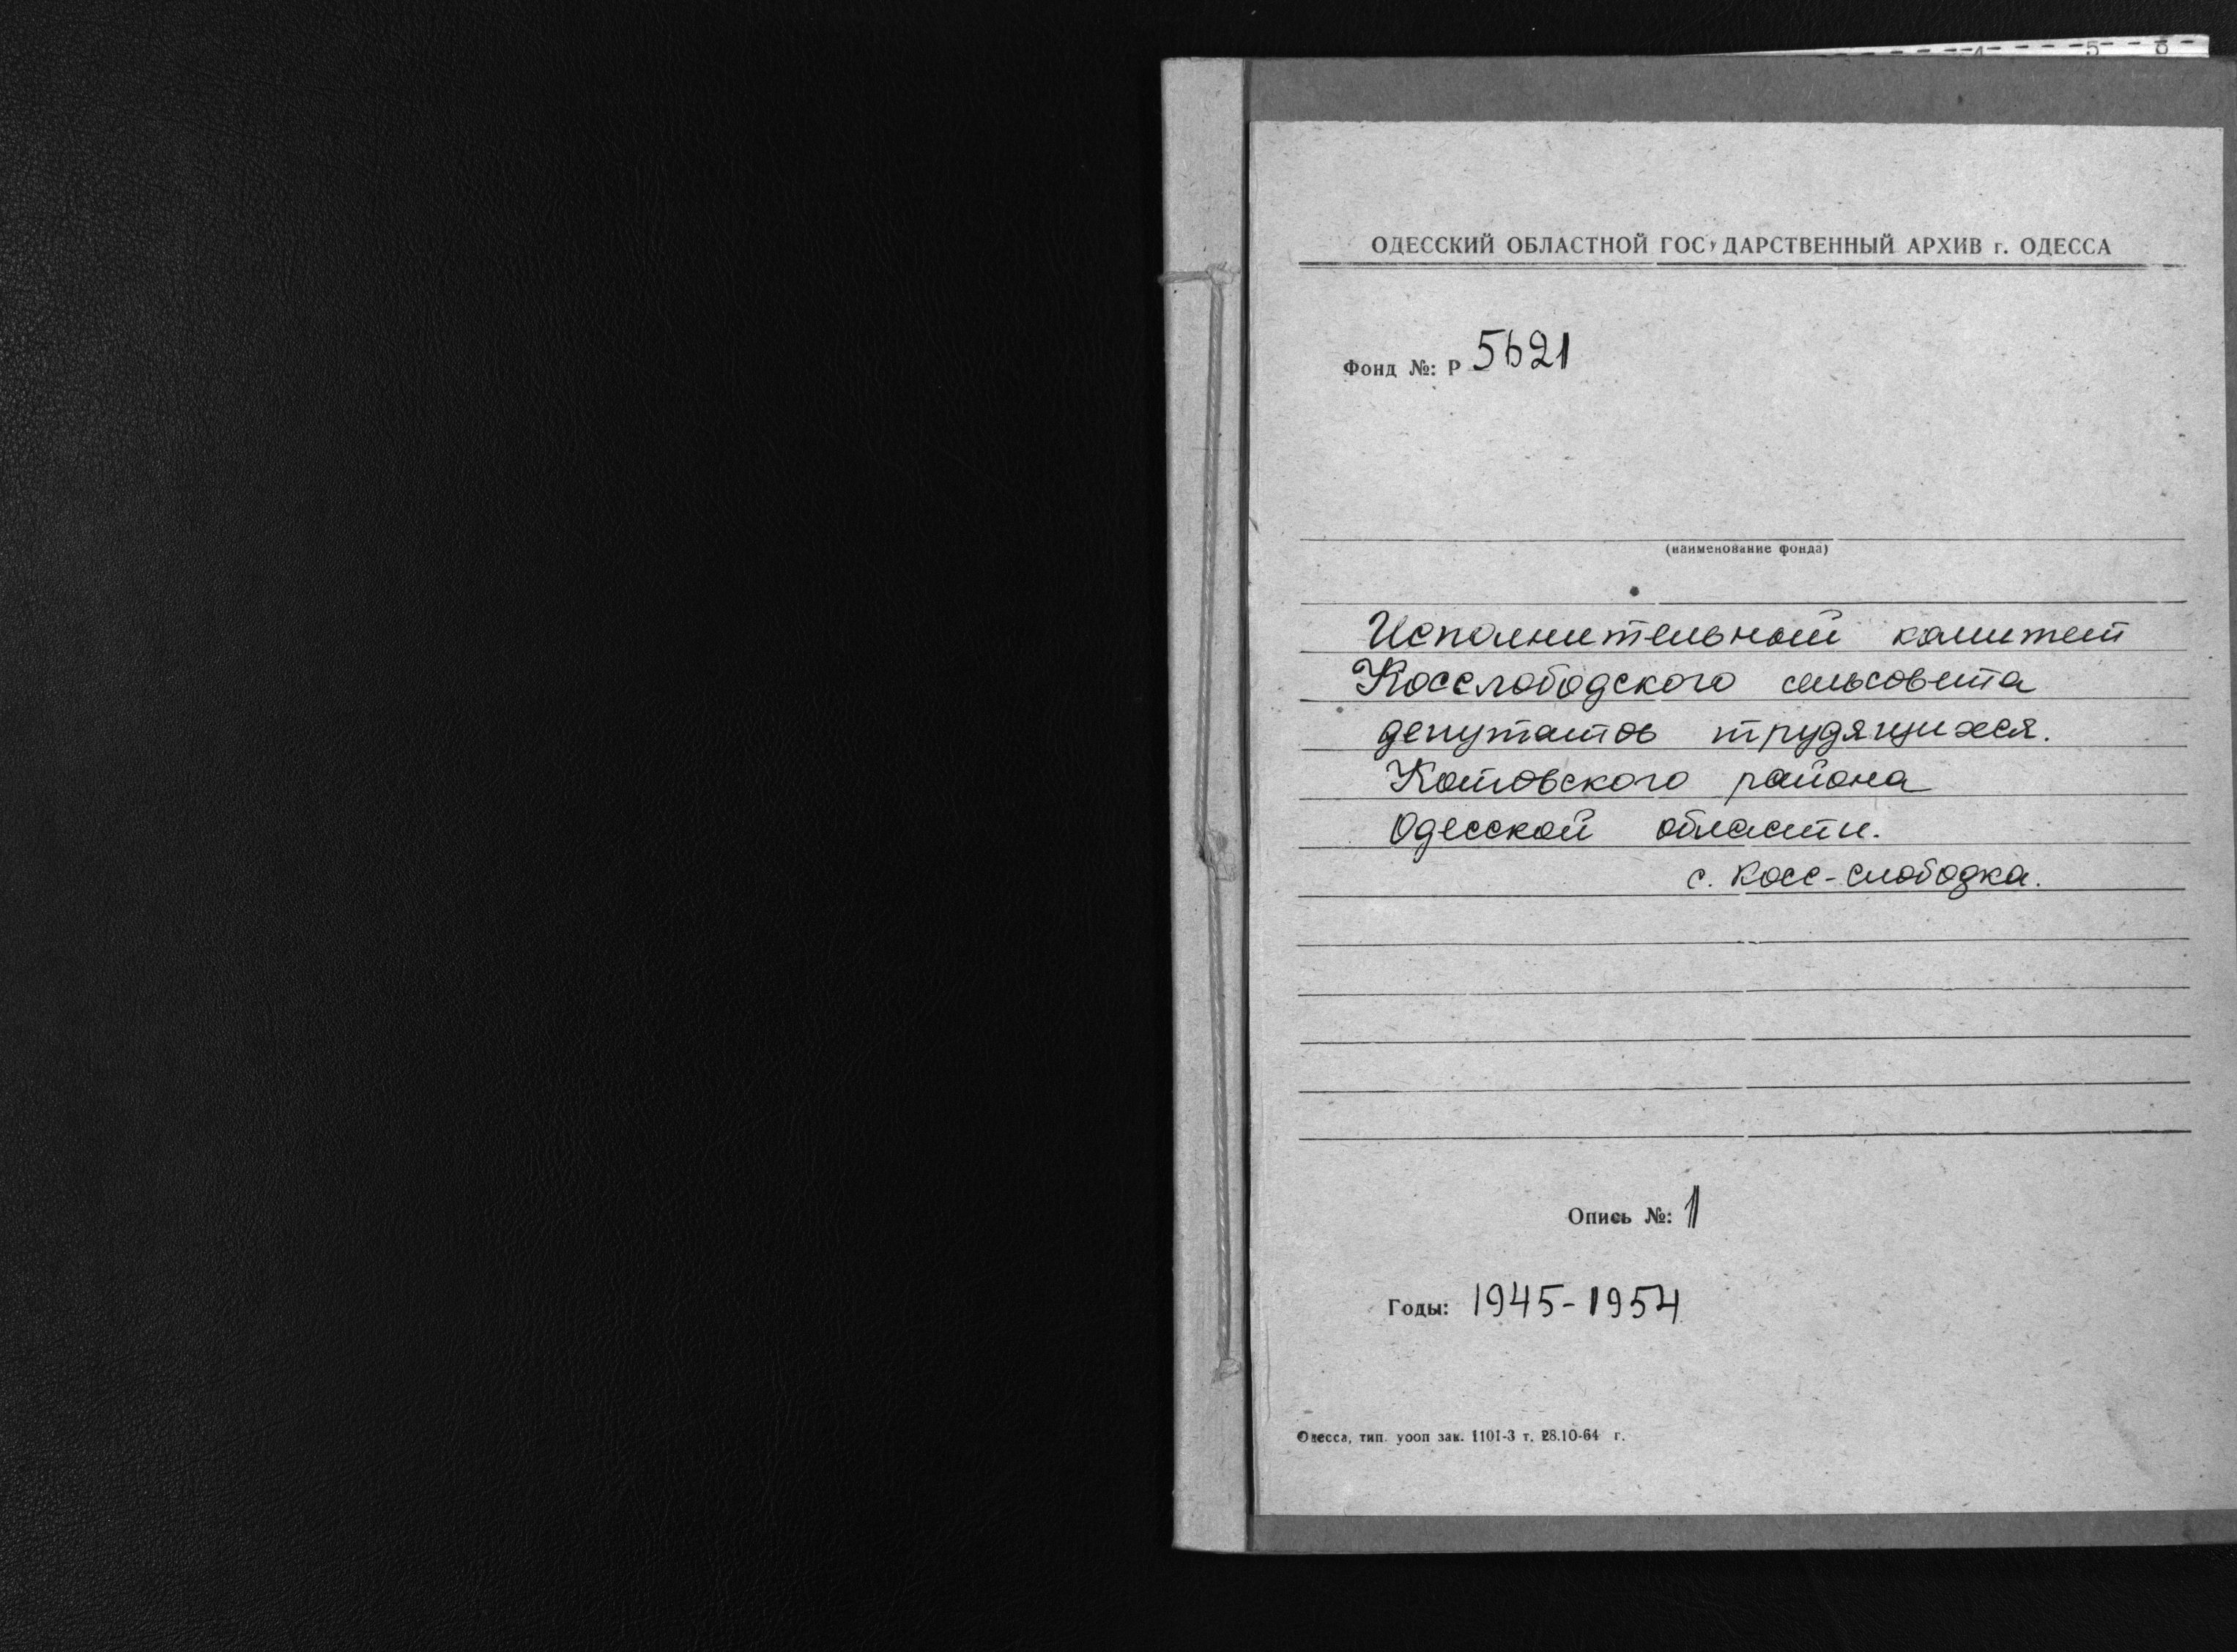 ОДЕССКИЙ ОБЛАСТНОЙ ГОСУДАРСТВЕННЫЙ АРХИВ г. ОДЕССА
Фонд №: Р 5621
(наименование фонда)
Исполнительный комитет
Косслободского сельсовета
депутатов трудящихся.
Котовского района
Одесской области.
с. Косс-слободка.
Опись №: 1
Годы: 1945-1954
Одесса, тип. уооп зак. 1101-3 т. 28.10-64 г.